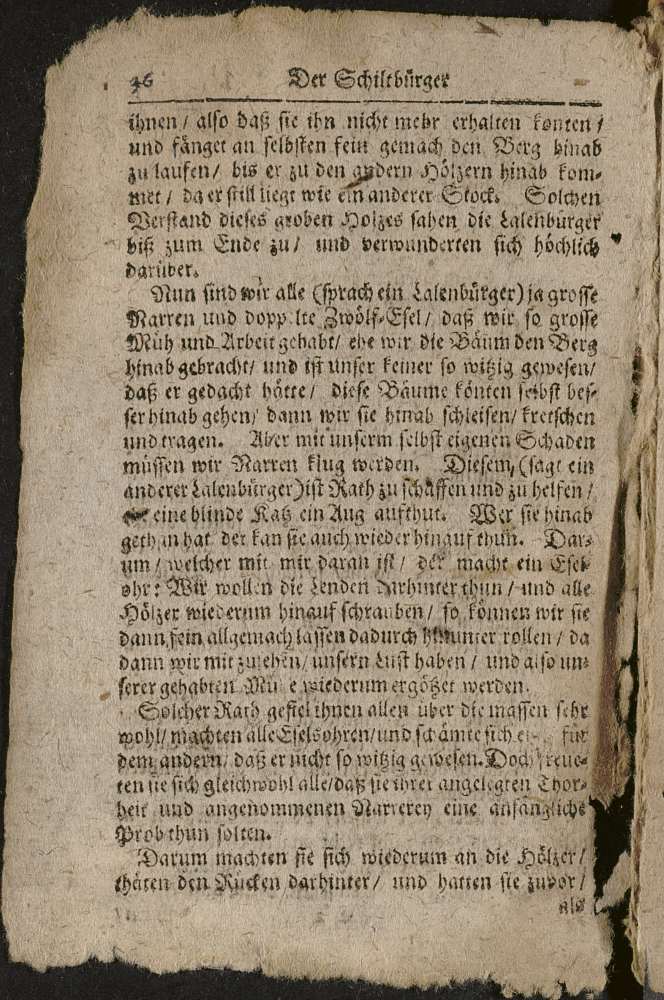 46 Der Schiltbürger
ihnen / also daß sie ihn nicht mehr erhalten konten /
und fänget an selbsten fein gemach den Berg hinab
zu laufen / bis er zu den andern Hölzern hinab kom-
met / da er still liegt wie ein anderer Stock. Solchen
Verstand dieses groben Holzes sahen die Lalenbürger
biß zum Ende zu / und verwunderten sich höchlich
darüber.
Nun sind wir alle (sprach ein Lalenbürger) ja grosse
Narren und dopp lte Zwölf-Esel / daß wir so grosse
Müh und Arbeit gehabt / ehe wir die Bäum den Berg
hinab gebracht / und ist unser keiner so witzig gewesen /
daß er gedacht hätte / diese Bäume könten selbst bes-
ser hinab gehen / dann wir sie hinab schleifen / kretschen
und tragen. Aber mit unserm selbst eigenen Schaden
müssen wir Narren klug werden. Diesem, (sagt ein
anderer Lalenbürger) ist Rath zu schaffen und zu helfen /
eine blinde Katz ein Aug aufthut. Wer sie hinab
gethan hat der kan sie auch wieder hinauf thun. Dar-
um / welcher mit mir daran ist / der macht ein Esel-
ohr: Wir wollen die Lenden darhinter thun / und alle
Hölzer wiederum hinauf schrauben / so können wir sie
dann fein allgemach lassen dadurch hinunter rollen / da
dann wir mit zusehen / unsern Lust haben / und also un-
serer gehabten Mü e wiederum ergötzet werden.
Solcher Rath gefiel ihnen allen über die massen sehr
wohl / machten alle Eselsohren / und schämte sich für
dem andern / daß er nicht so witzig gewesen. Doch freue-
ten sie sich gleichwohl alle / daß sie ihrer angelegten Thor-
heit und angenommenen Narrerey eine anfängliche
Prob thun solten.
Darum machten sie sich wiederum an die Hölzer /
thäten den Rücken darhinter / und hatten sie zuvor /
als